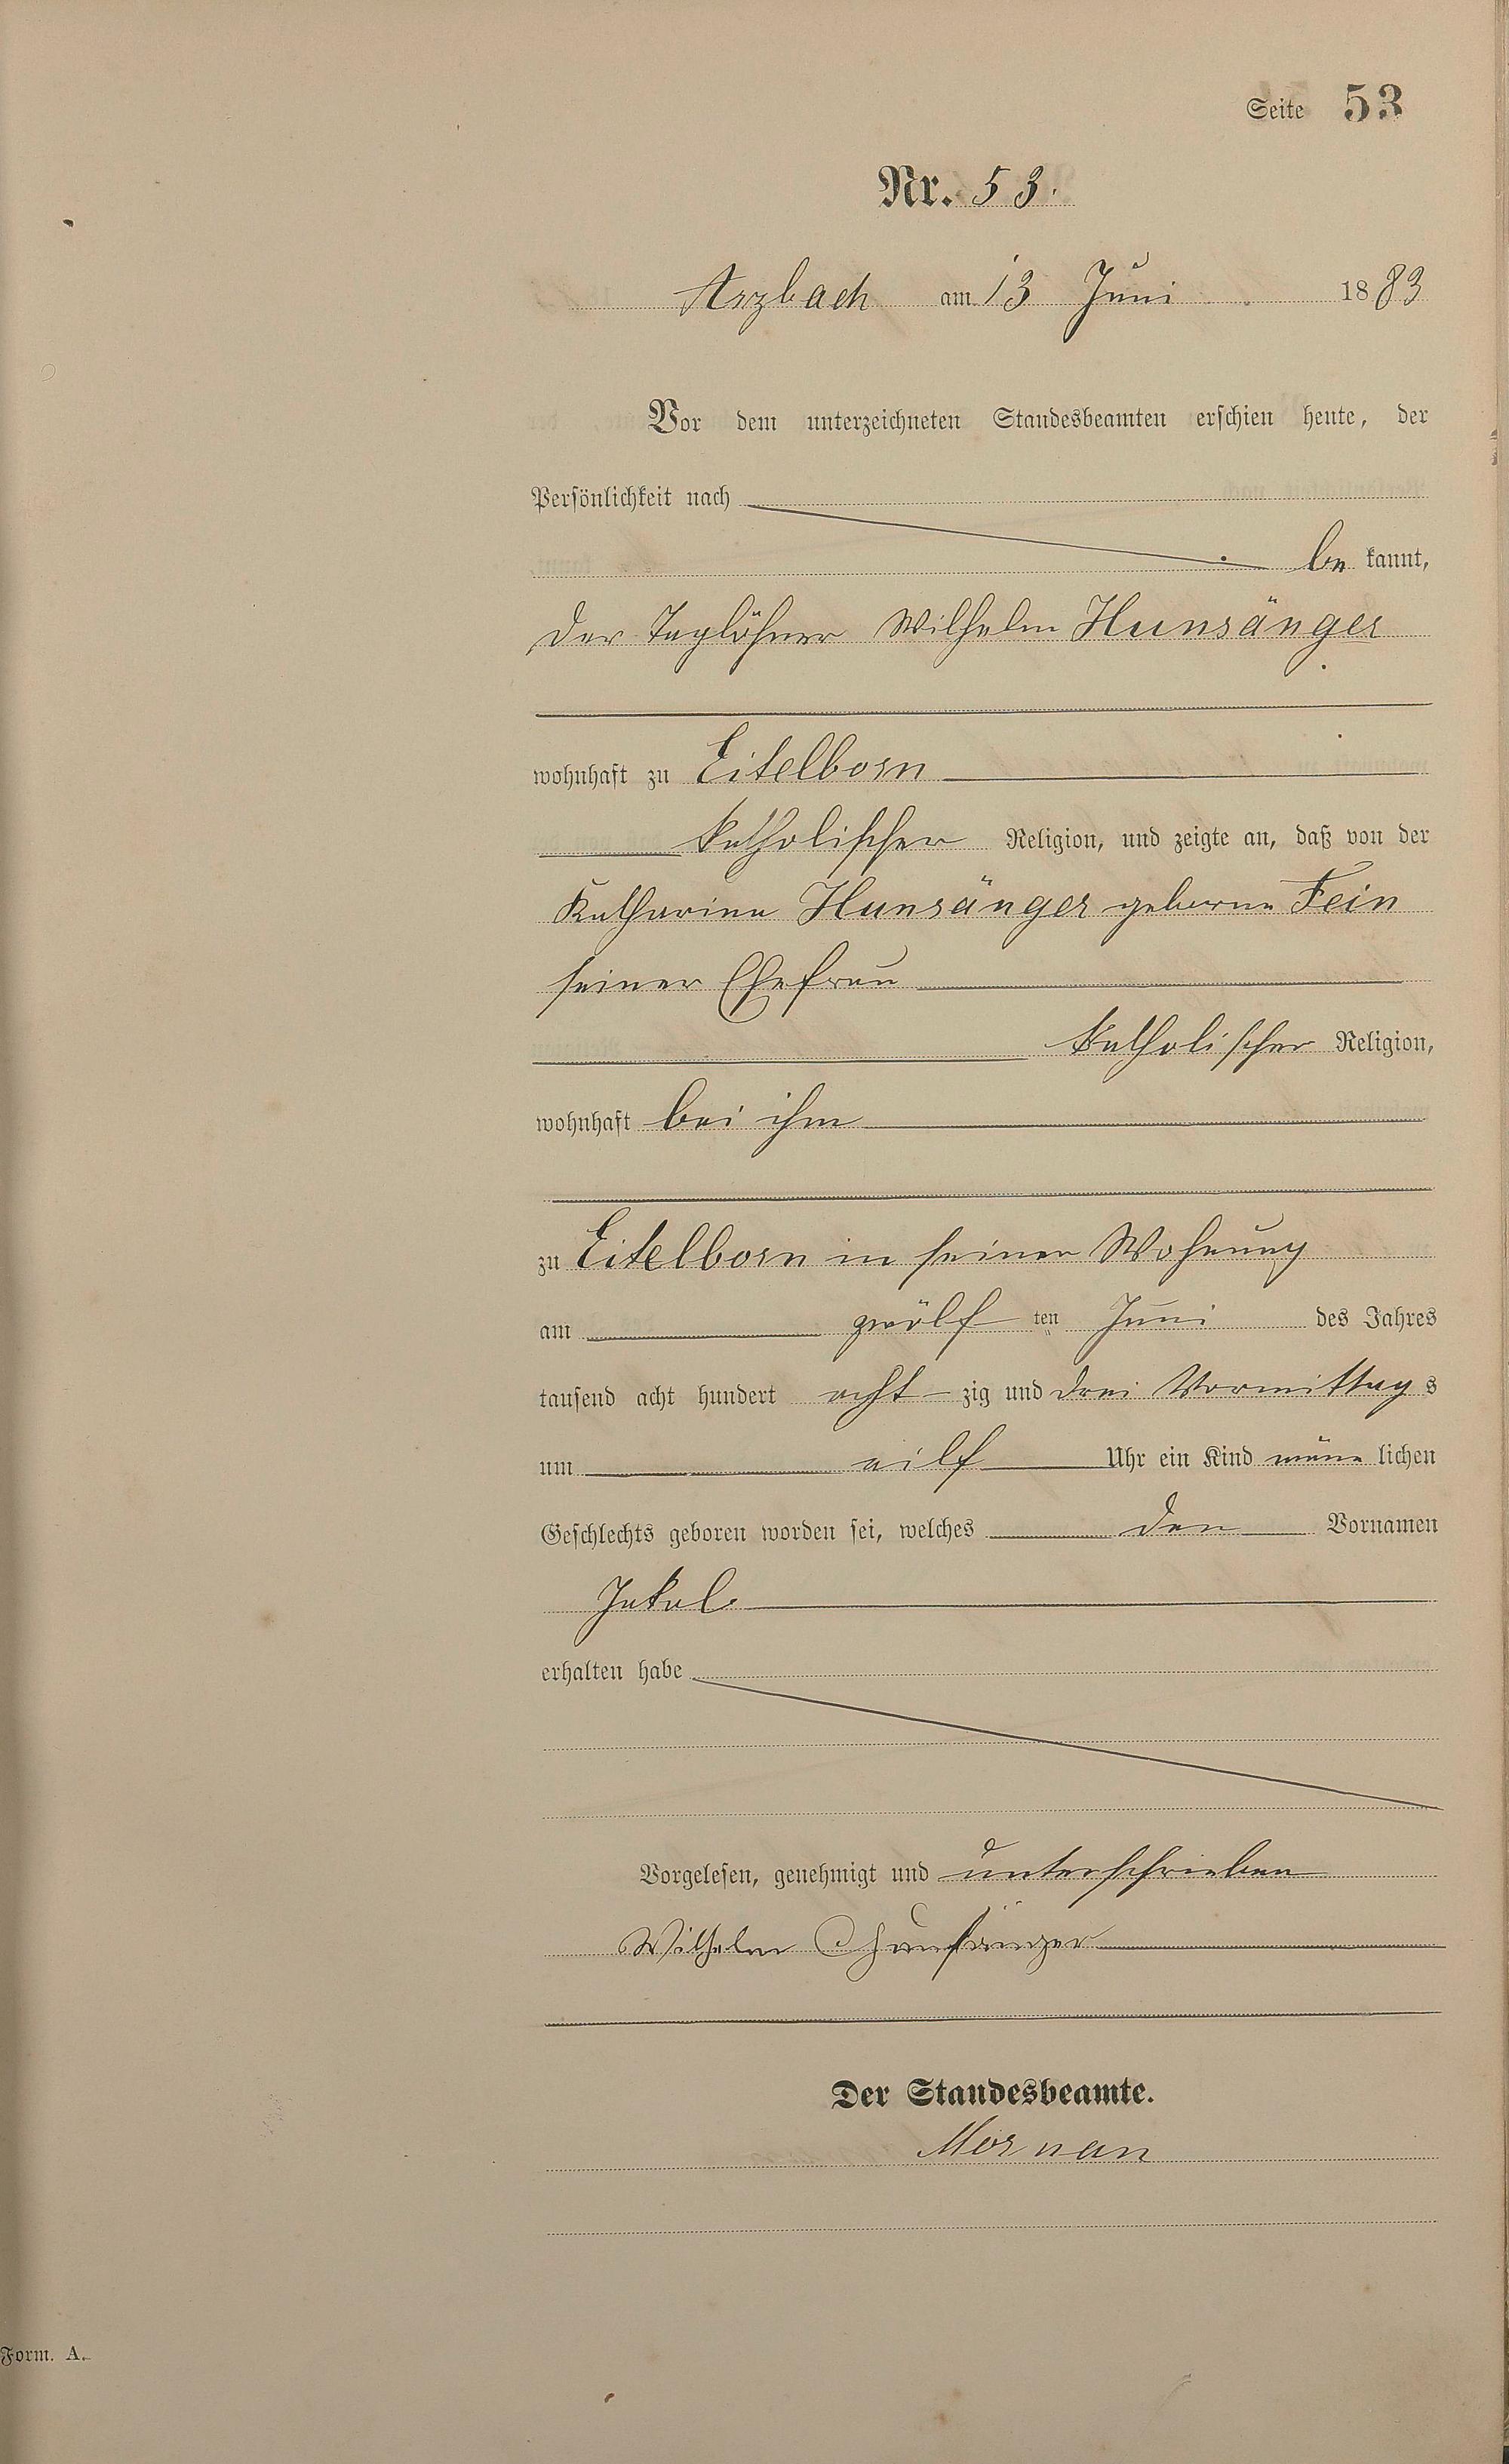 Seite 53
Nr. 53.
Arzbach am 13 Juni 1883
Vor dem unterzeichneten Standesbeamten erschien heute, der
Persönlichkeit nach
be kannt,
der Taglöhner Wilhelm Hunsänger
wohnhaft zu Eitelborn
katholischer Religion, und zeigte an, daß von der
Katharina Hunsänger geborne Fein
seiner Ehefrau
katholischer Religion,
wohnhaft bei ihm
zu Eitelborn in seiner Wohnung
am zwölf ten Juni des Jahres
tausend acht hundert acht zig und drei Vormittag s
um eilf Uhr ein Kind männ lichen
Geschlechts geboren worden sei, welches den Vornamen
Jakob
erhalten habe
Vorgelesen, genehmigt und unterschrieben
Wilhelm Hunsänger
Der Standesbeamte.
Form. A.